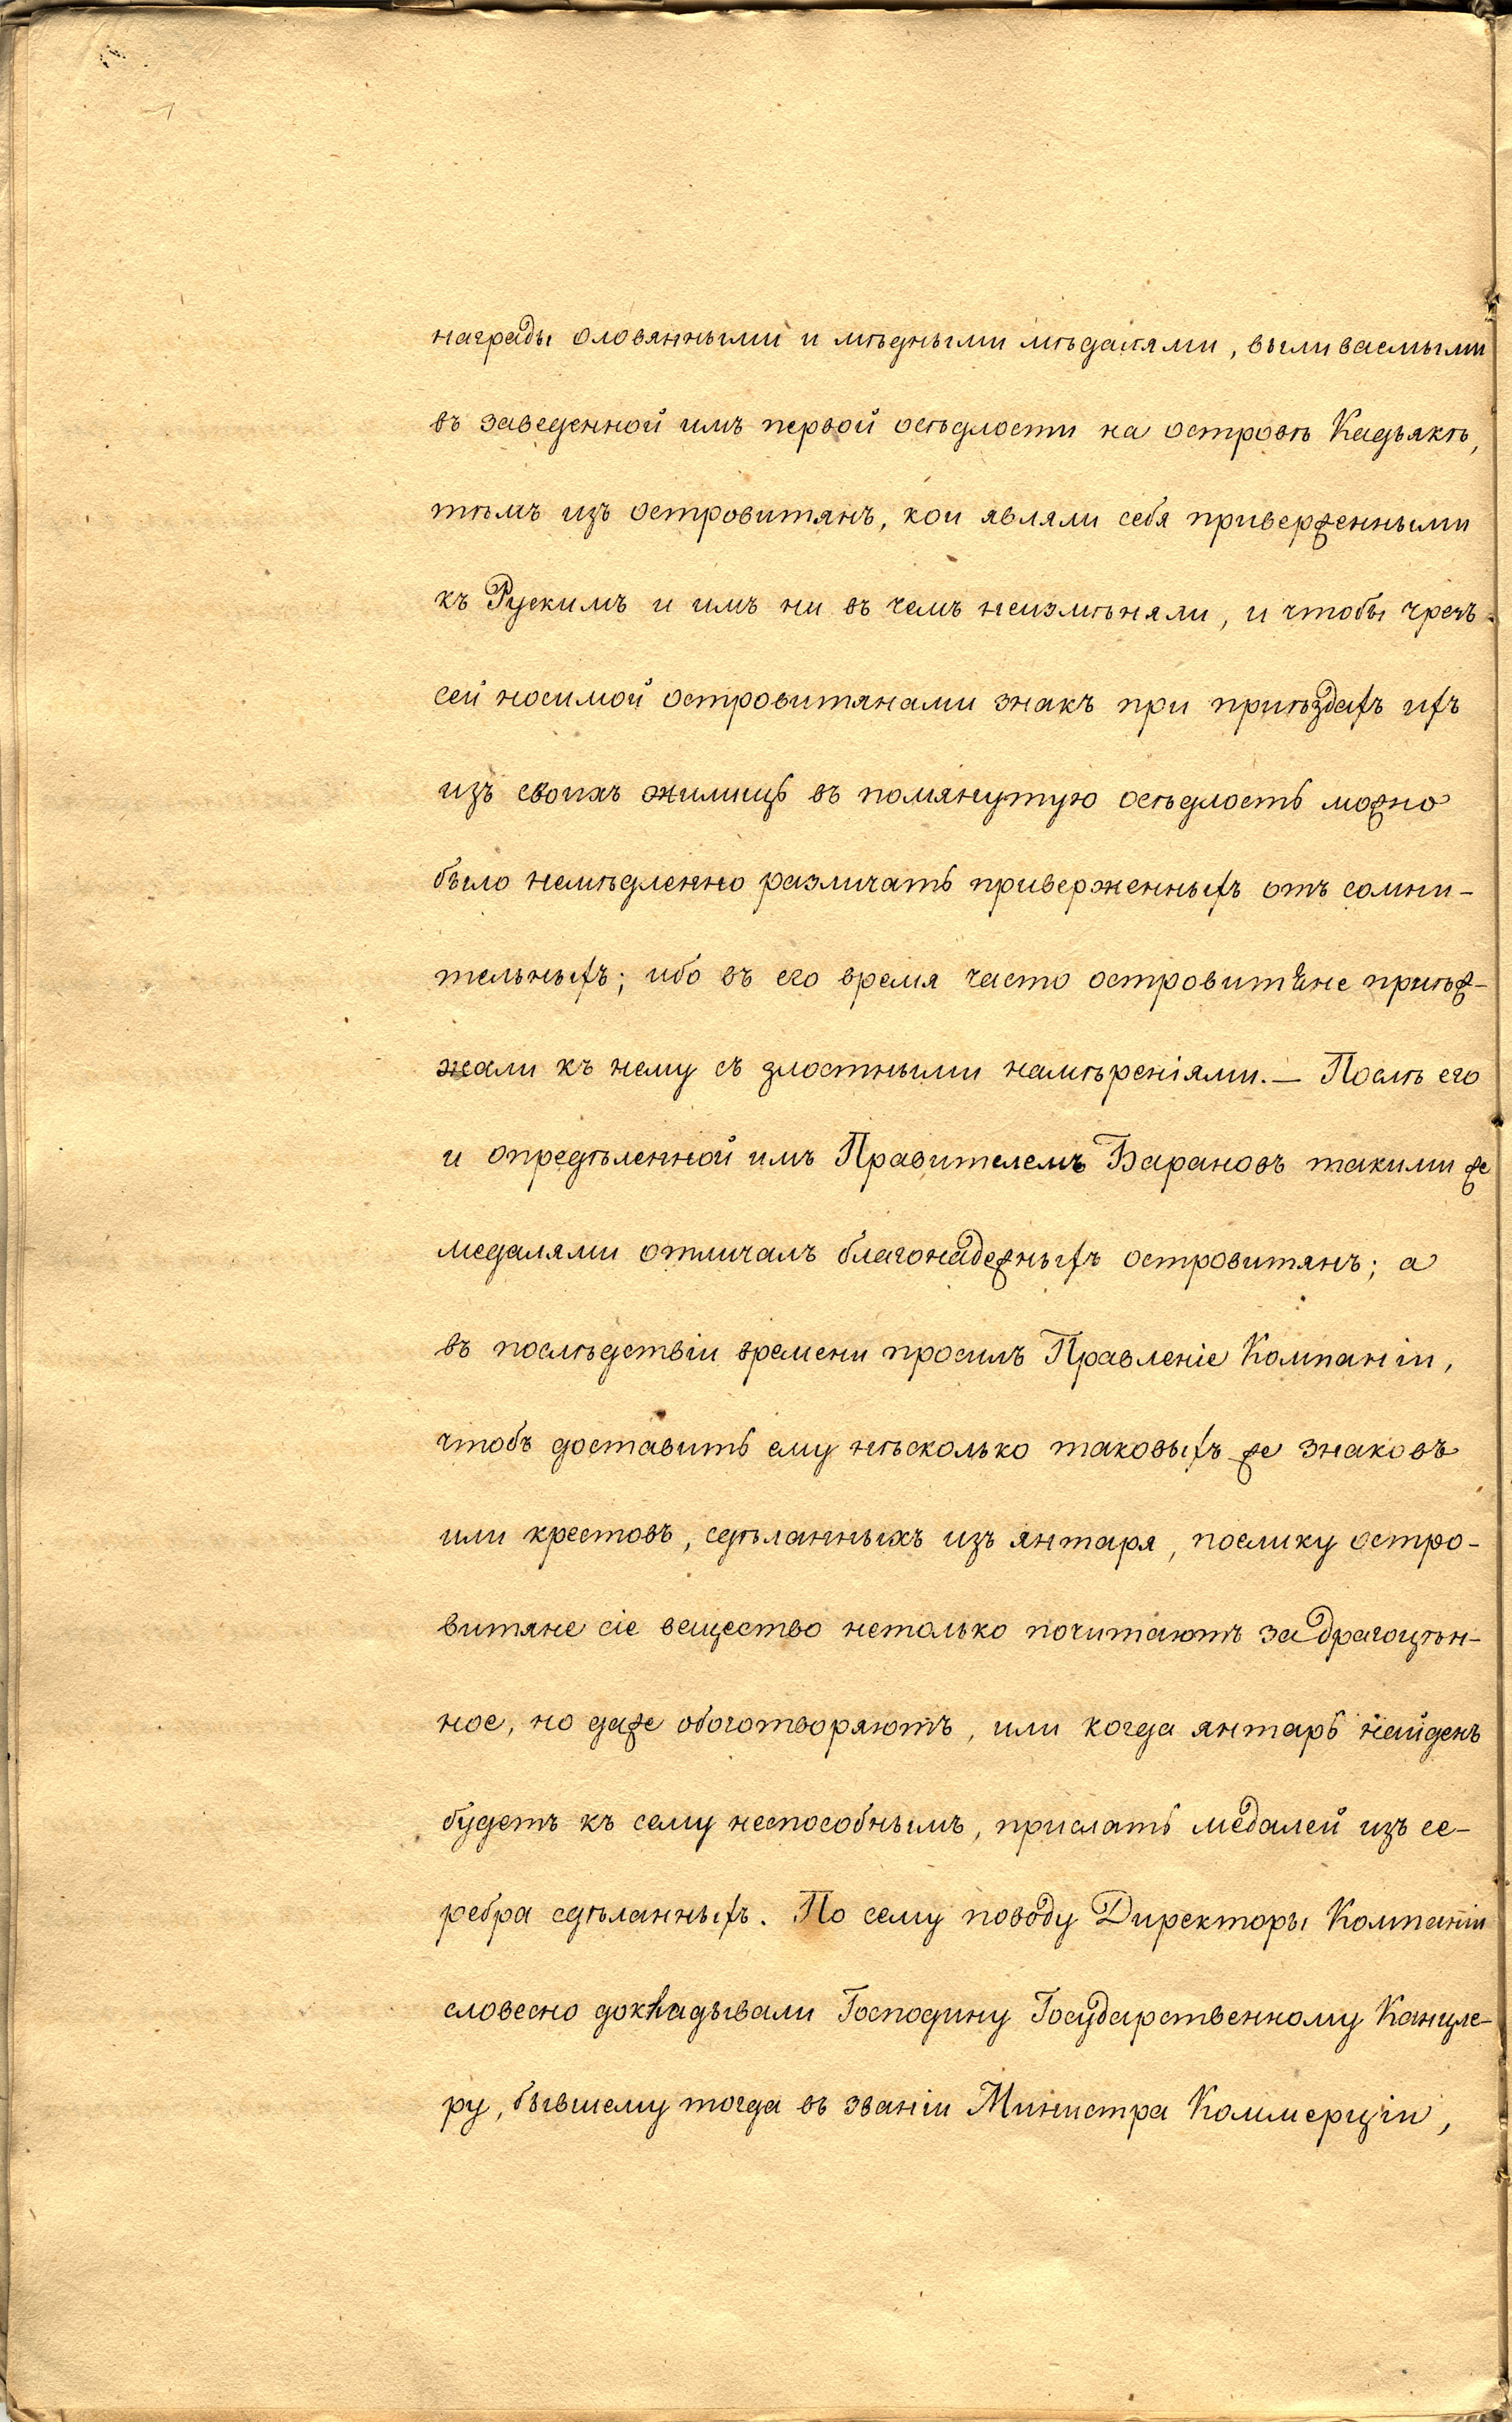 награды оловянными и мѣдными мѣдалями, выливаемыми
въ заведенной имъ первой осѣдлости на островѣ Кадьякѣ,
тѣмъ изъ островитянъ, кои являли себя приверженными
къ Рускимъ и имъ ни въ чемъ неизмѣняли, и чтобы чрезъ
сей носимой островитянами знакъ при приѣздахъ ихъ
изъ своихъ жилищь въ помянутую осѣдлость можно
было немѣдленно различать приверженныхъ отъ сомни-
тельныхъ; ибо въ его время часто островитяне приѣж-
жали къ нему съ злостными намѣреніями. — Послѣ его
и опредѣленной имъ Правителемъ Барановъ такими же
медалями отличалъ благонадежныхъ островитянъ; а
въ послѣдствіи времени просилъ Правленіе Компаніи,
чтобъ доставить ему нѣсколько таковыхъ же знаковъ
или крестовъ, сдѣланныхъ изъ янтаря, поелику остро-
витяне сіе вещество нетолько почитаютъ за драгоцѣн-
ное, но даже обоготворяютъ, или когда янтарь найденъ
будетъ къ сему неспособнымъ, прислать медалей изъ се-
ребра сдѣланныхъ. По сему поводу Директоры Компаніи
словесно докладывали Господину Государственному Канцле-
ру, бывшему тогда въ званіи Министра Коммерціи,